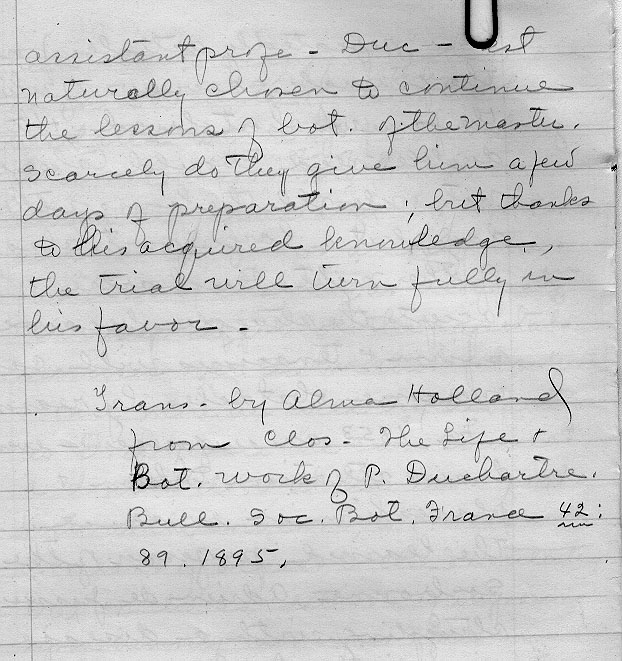 assistant profe - Duc - est
naturally chosen to continue
the lessons of bot. of the master.
Scarcely do they give him a few
days of preparation; but thanks
to his acquired knowledge,
the trial will turn fully in
his favor -
Trans - by Alma Holland
from Clos - The Life +
Bot. work of P. Duchartre.
Bull. Soc. Bot. France 42:
89. 1895,